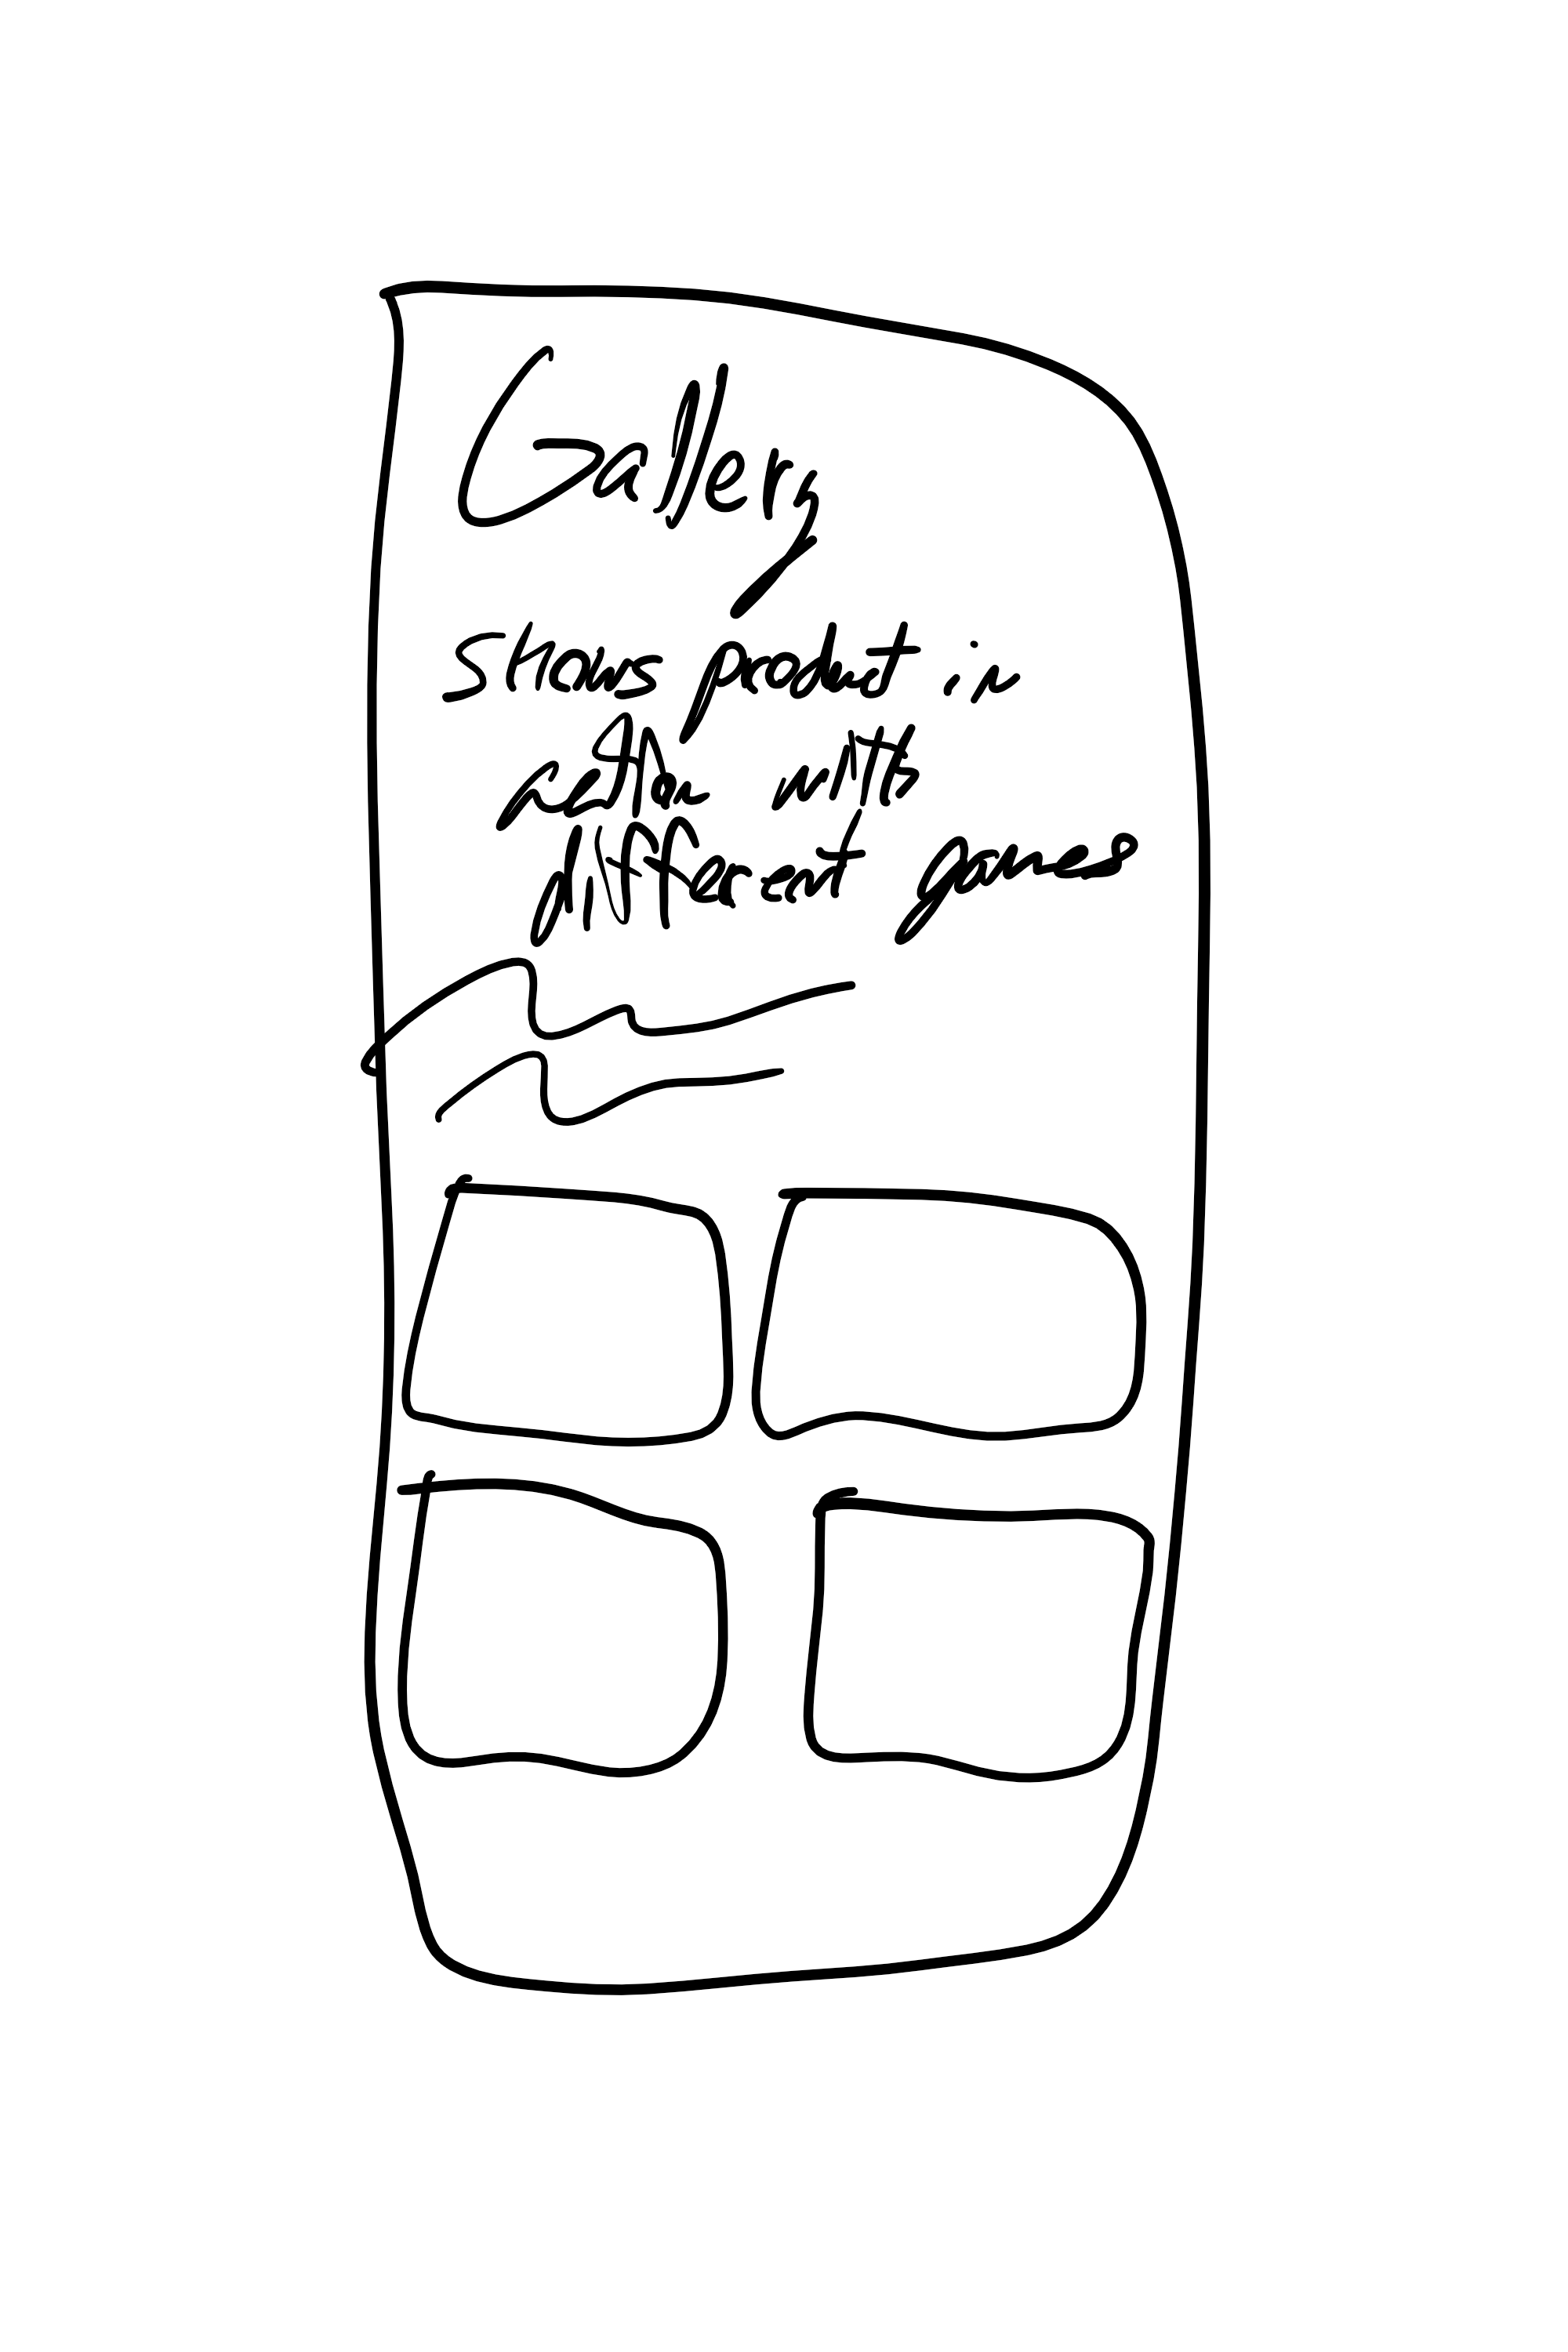 Gallery
Shows product in
action with
different games